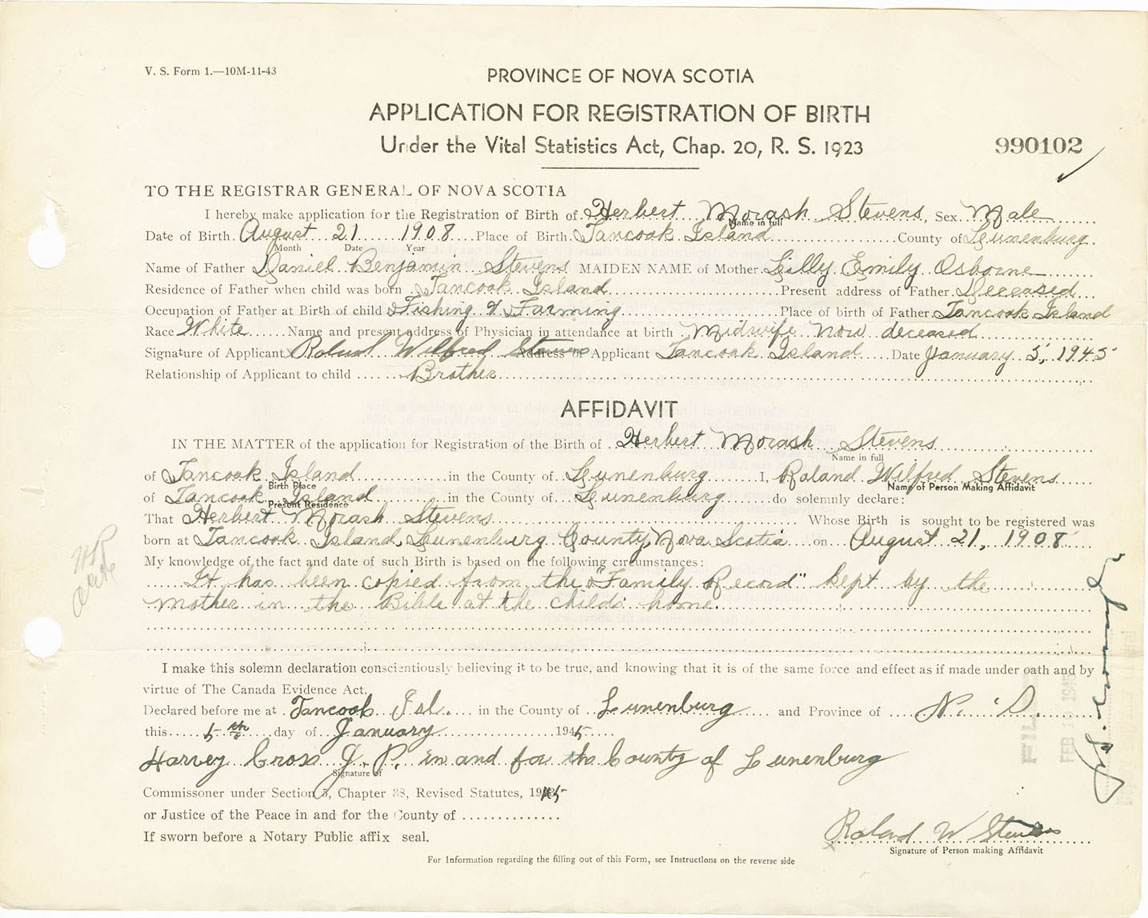 V. S. Form 1.—10M-11-43
PROVINCE OF NOVA SCOTIA
APPLICATION FOR REGISTRATION OF BIRTH
Under the Vital Statistics Act, Chap. 20, R. S. 1923
990102
TO THE REGISTRAR GENERAL OF NOVA SCOTIA
I hereby make application for the Registration of Birth of Herbert Morash Stevens Sex Male
Name in full
Date of Birth August 21 1908 Place of Birth Tancook Island County of Lunenburg
Month Date Year
Name of Father Daniel Benjamin Stevens MAIDEN NAME of Mother Lilly Emily Osborne
Residence of Father when child was born Tancook Island Present address of Father Deceased
Occupation of Father at Birth of child Fishing & Farming Place of birth of Father Tancook Island
Race White Name and present address of Physician in attendance at birth Midwife now deceased
Signature of Applicant Roland Wilfred Stevens Address of Applicant Tancook Island Date January 5, 1945
Relationship of Applicant to child Brother
AFFIDAVIT
IN THE MATTER of the application for Registration of the Birth of Herbert Morash Stevens
Name in full
of Tancook Island in the County of Lunenburg I, Roland Wilfred Stevens
Birth Place Name of Person Making Affidavit
of Tancook Island in the County of Lunenburg do solemnly declare:
Present Residence
That Herbert Morash Stevens Whose Birth is sought to be registered was
born at Tancook Island, Lunenburg County, Nova Scotia on August 21, 1908
My knowledge of the fact and date of such Birth is based on the following circumstances:
It has been copied from the "Family Record" kept by the
mother in the Bible at the childs home.
I make this solemn declaration conscientiously believing it to be true, and knowing that it is of the same force and effect as if made under oath and by
virtue of The Canada Evidence Act.
Declared before me at Tancook Isl. in the County of Lunenburg and Province of N. S.
this 5th day of January 1945
Harvey Cross J. P. in and for the County of Lunenburg
Signature of
Commissioner under Section 3, Chapter 38, Revised Statutes, 1945
or Justice of the Peace in and for the County of
If sworn before a Notary Public affix seal.
Roland W Stevens
Signature of Person making Affidavit
For Information regarding the filling out of this Form, see Instructions on the reverse side
FEB 10 194